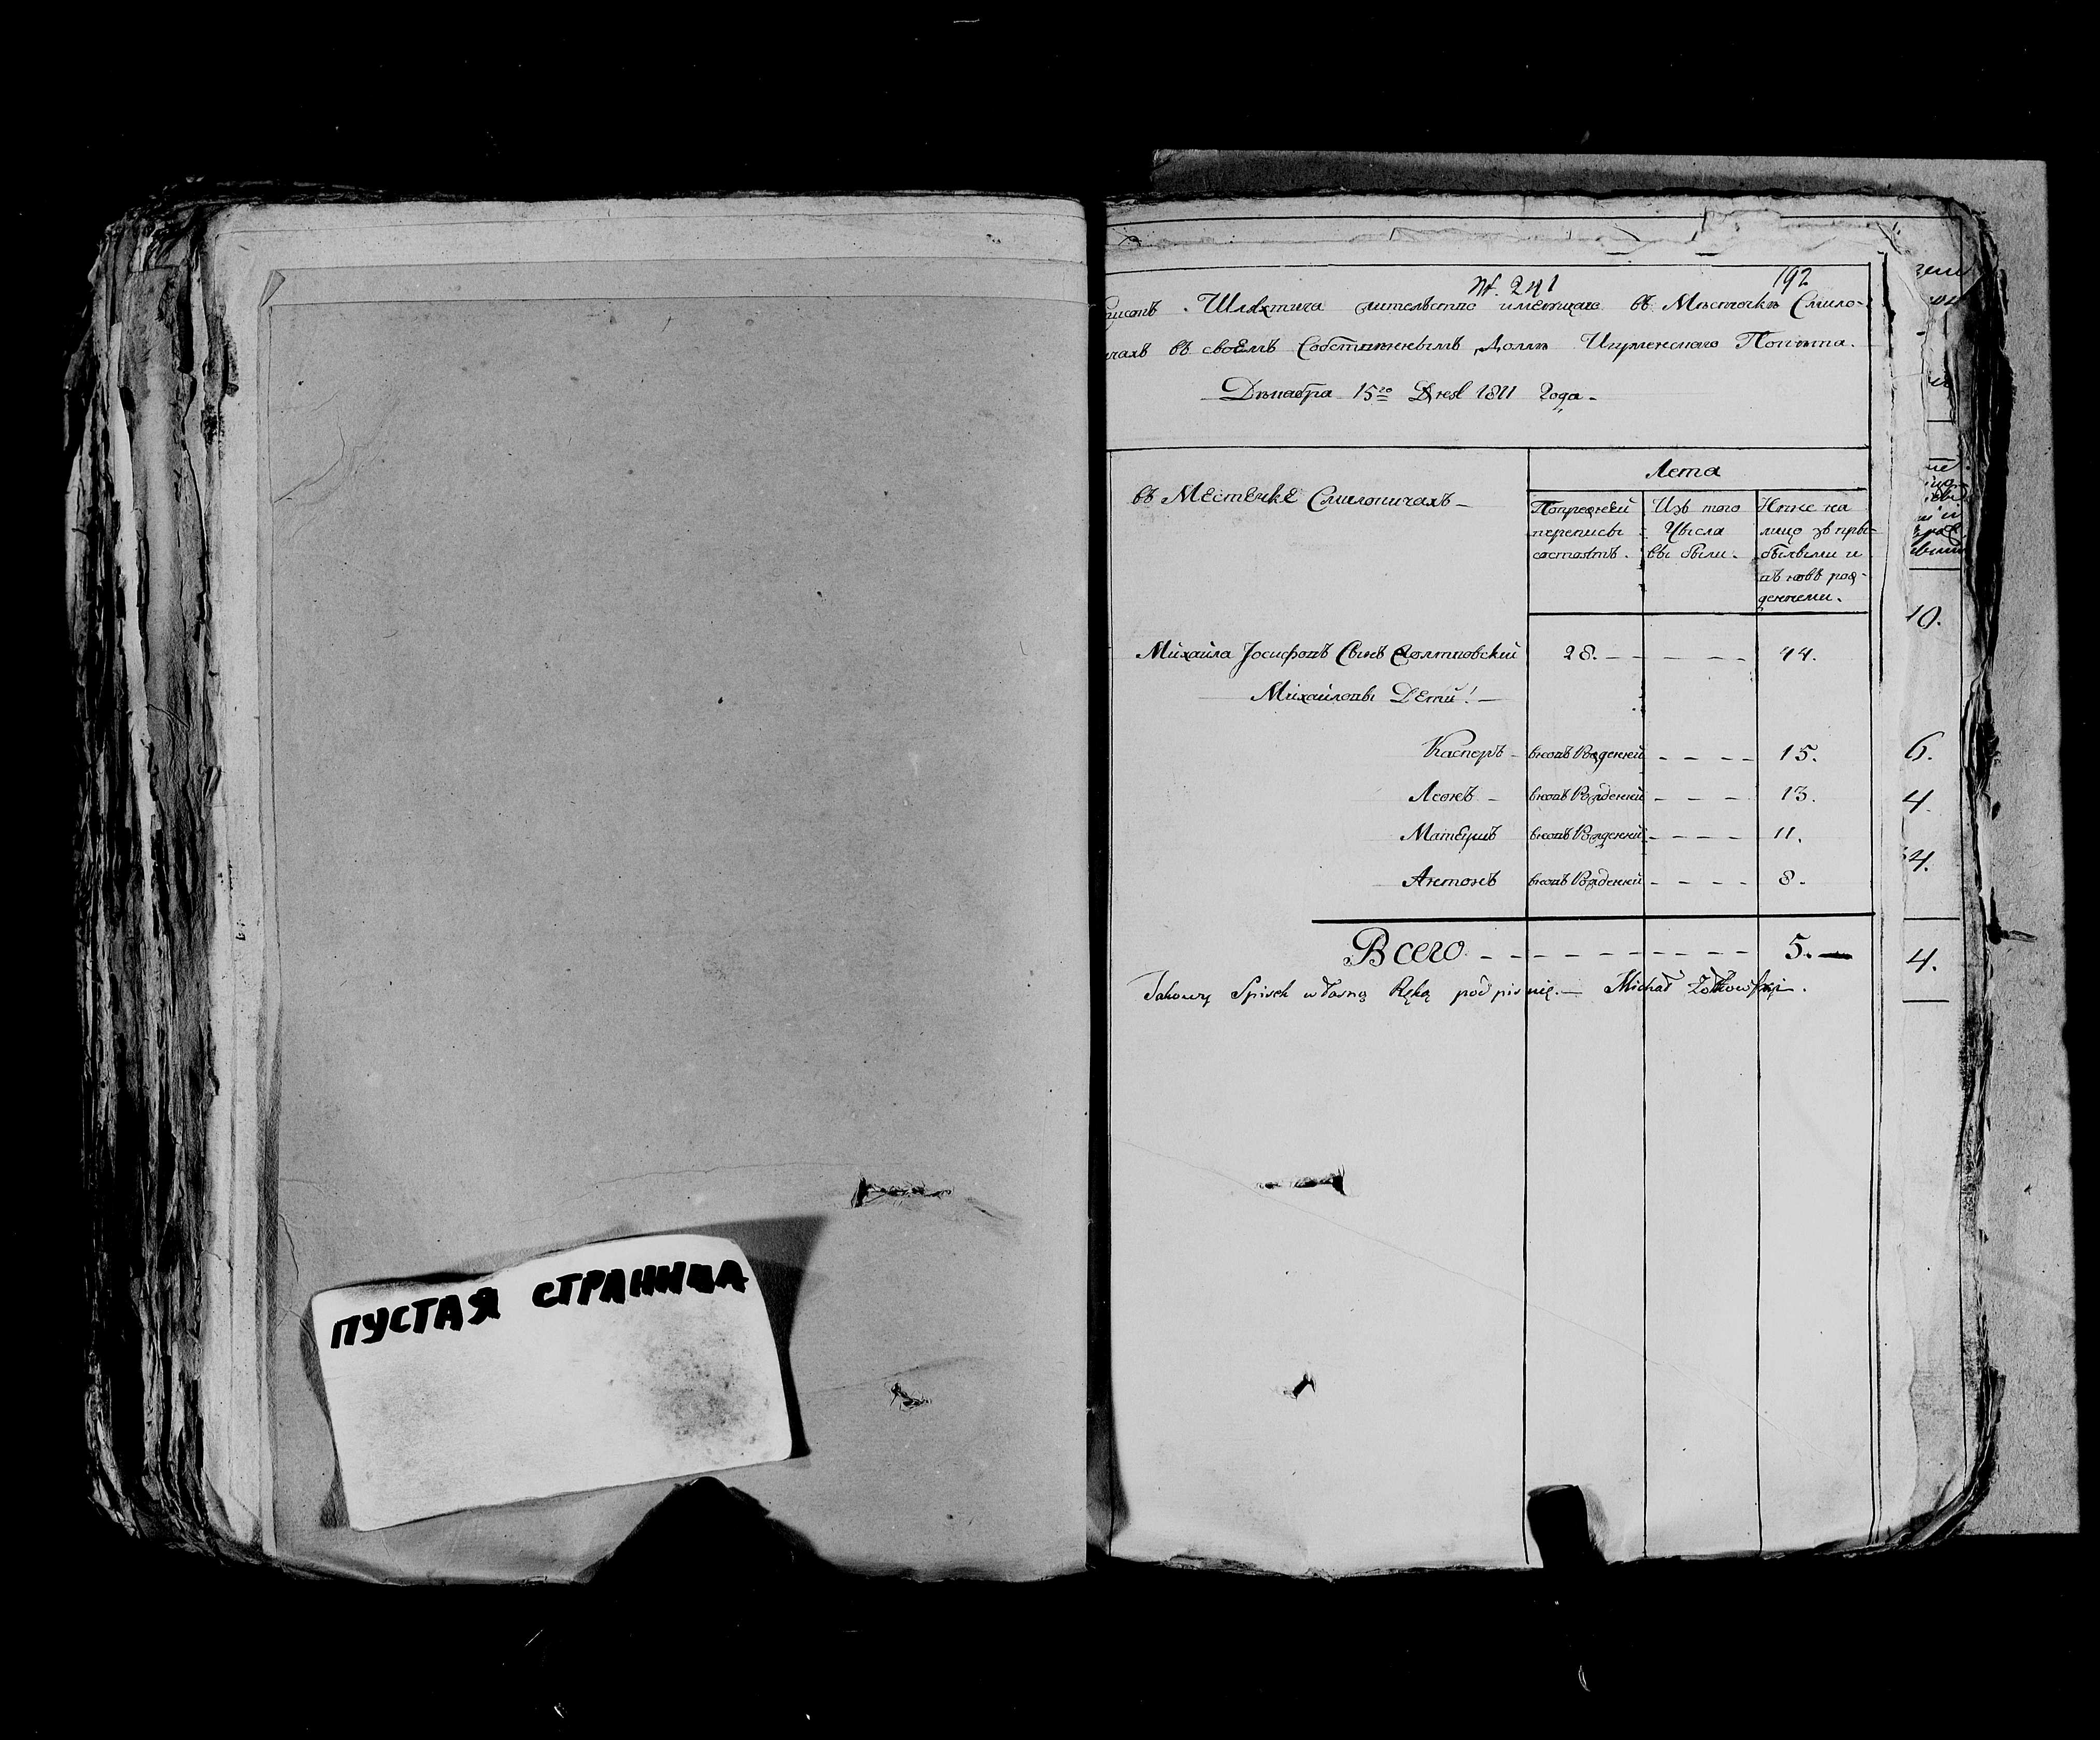 ПУСТАЯ СТРАНИЦА
№. 241
192
Шляхтича жительство имеющаго въ Мѣсточкѣ Смило-
въ своемъ Собственнымъ Домѣ Игуменского Повѣта.
Дѣкабра 15го Дня 1811 Года.
въ Местечкѣ Смиловичахъ
Лета
Попрежней переписы состоятъ.
Изъ того Чысла вы были.
Ниже на лицо зъ пры-
былыми и
зъ новъ рож-
денными.
Михайла Іосифовъ Сынъ Жолтковский 28. 44.
Михайловы Дети!
Касперъ вновъ Рожденный 15.
Леонъ вновъ Рожденный 13.
Матеушъ вновъ Рожденный 11.
Антонъ вновъ Рожденный 8.
Всего 5.
Takowy Spisek własną Ręką podpisuię. Michał Żołtkowski.
10.
6.
4.
4.
4.